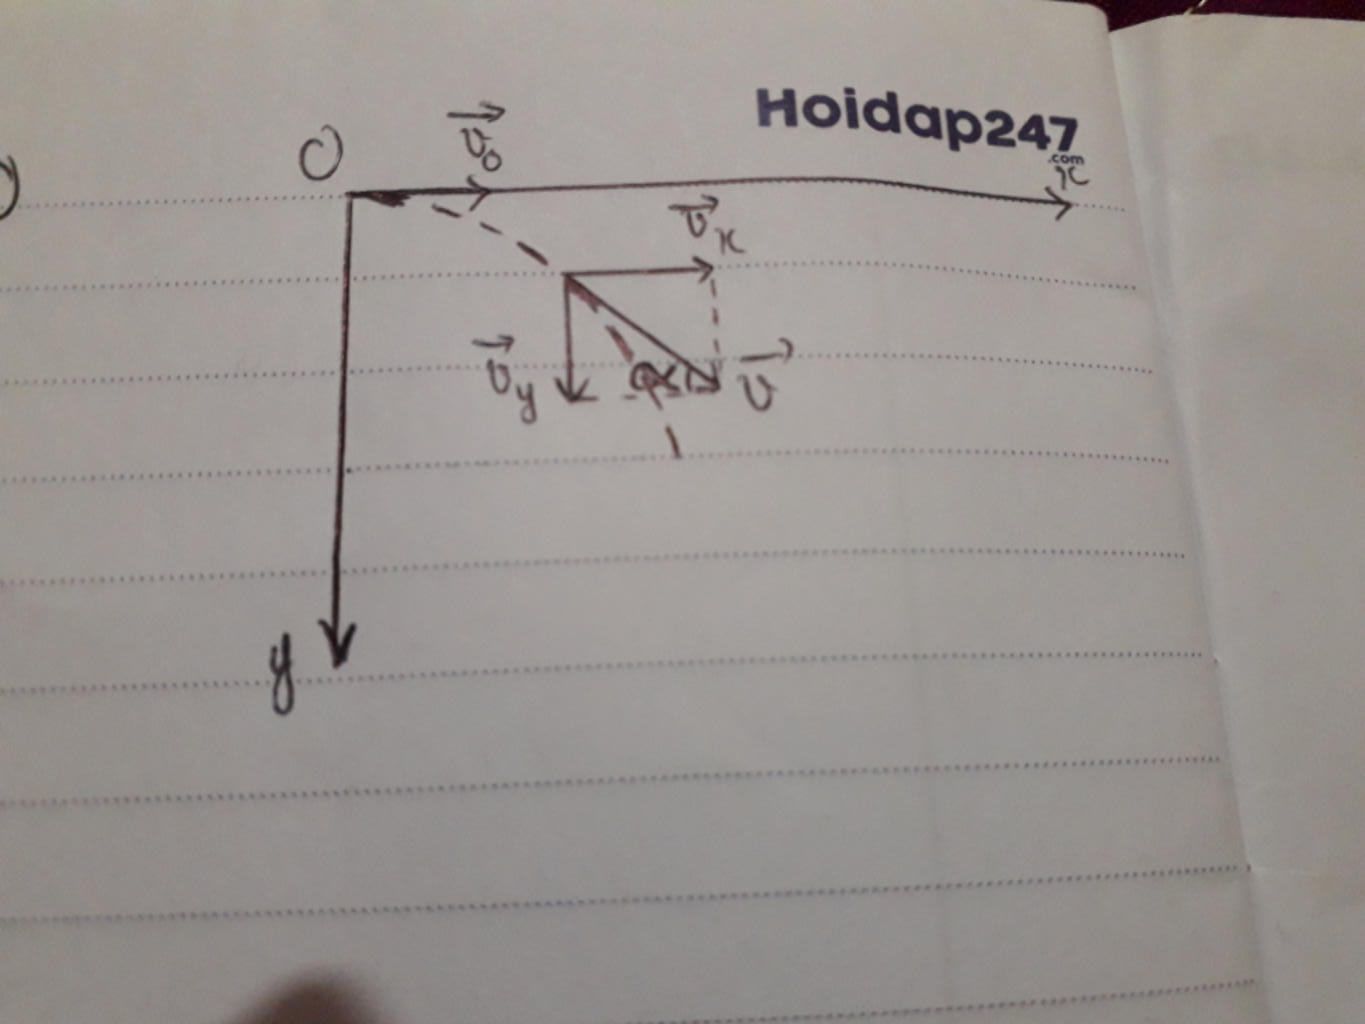 Hoidap247
.com
O
v₀
x
vₓ
v_y
α
v
y